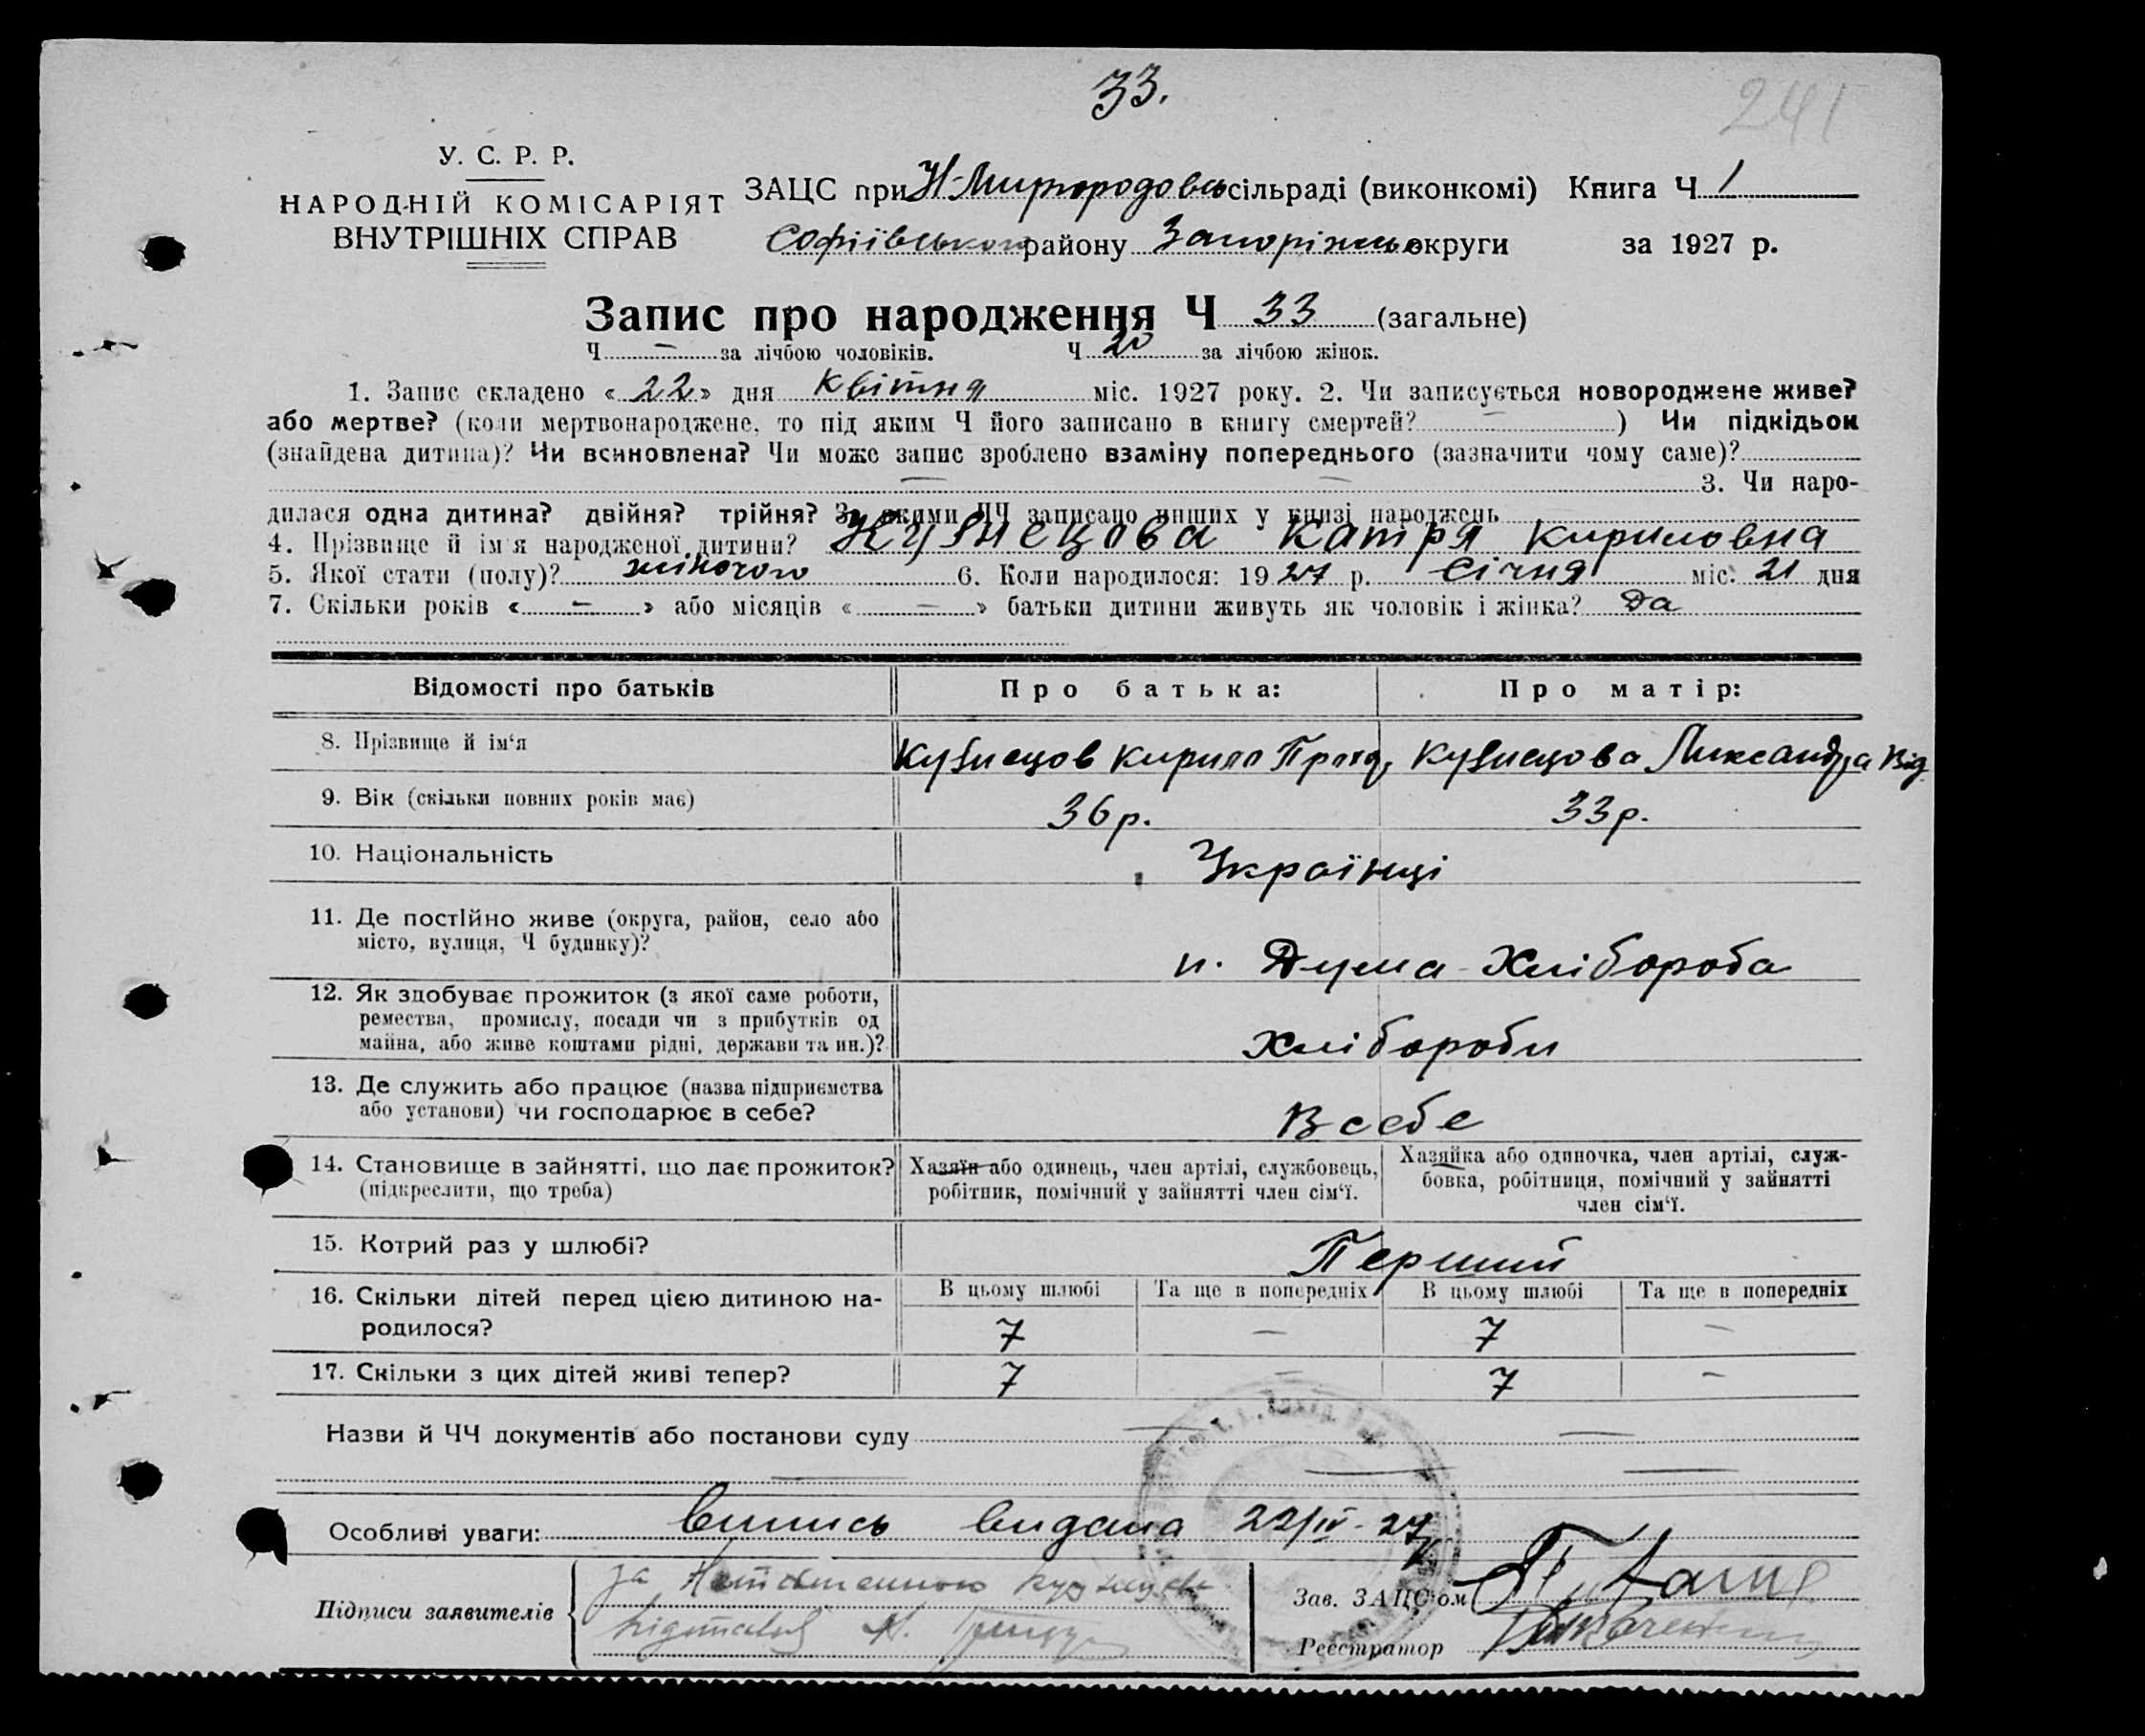 33.
241
У. С. Р. Р.
НАРОДНІЙ КОМІСАРІЯТ
ВНУТРІШНІХ СПРАВ
ЗАЦС при Н-Миргородовсь сільраді (виконкомі) Книга Ч 1
Софіївського району Запоріжсько округи за 1927 р.
Запис про народження Ч 33 (загальне)
Ч — за лічбою чоловіків. Ч 20 за лічбою жінок.
1. Запис складено « 22 » дня квітня міс. 1927 року. 2. Чи записується новороджене живе?
або мертве? (коли мертвонароджене, то під яким Ч його записано в книгу смертей? — ) Чи підкідьок
(знайдена дитина)? Чи всиновлена? Чи може запис зроблено взаміну попереднього (зазначити чому саме)?
— — 3. Чи наро-
дилася одна дитина? двійня? трійня? За якими ЧЧ записано инших у книзі народжень
4. Прізвище й ім'я народженої дитини? Кузнецова Катря Кириловна
5. Якої стати (полу)? жіночого 6. Коли народилося: 1927 р. Січня міс. 21 дня
7. Скільки років « — » або місяців « — » батьки дитини живуть як чоловік і жінка? Да
Відомості про батьків Про батька: Про матір:
8. Прізвище й ім'я Кузнецов Кирило Кузнецова Ликсандра
9. Вік (скільки повних років має) 36 р. 33 р.
10. Національність Українці
11. Де постійно живе (округа, район, село або
місто, вулиця, Ч будинку)?
п. Дума-Хлібороба
12. Як здобуває прожиток (з якої саме роботи,
ремества, промислу, посади чи з прибутків од
майна, або живе коштами рідні, держави та ин.)?
Хлібороби
13. Де служить або працює (назва підприємства
або установи) чи господарює в себе?
В себе
14. Становище в зайнятті, що дає прожиток?
(підкреслити, що треба)
Хазяїн або одинець, член артілі, службовець,
робітник, помічний у зайнятті член сім'ї.
Хазяйка або одиночка, член артілі, служ-
бовка, робітниця, помічний у зайнятті
член сім'ї.
15. Котрий раз у шлюбі? Перший
16. Скільки дітей перед цією дитиною на-
родилося?
В цьому шлюбі Та ще в попередніх В цьому шлюбі Та ще в попередніх
7 — 7 —
17. Скільки з цих дітей живі тепер? 7 — 7 —
Назви й ЧЧ документів або постанови суду — —
— — —
Особливі уваги: Випись видана 22/IV-27
Підписи заявителів
за
Зав. ЗАЦС'ом
Реєстратор